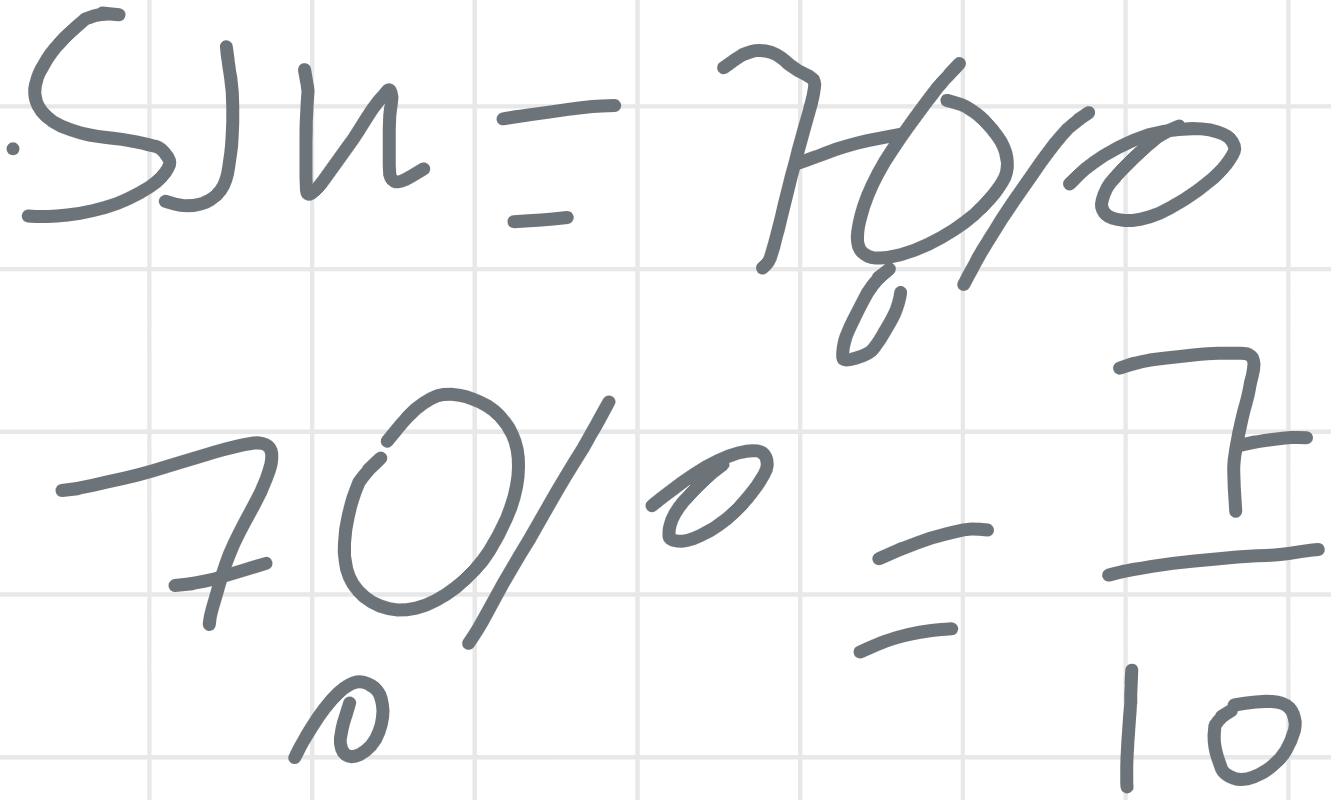 Sin = 70%
70% = 7/10